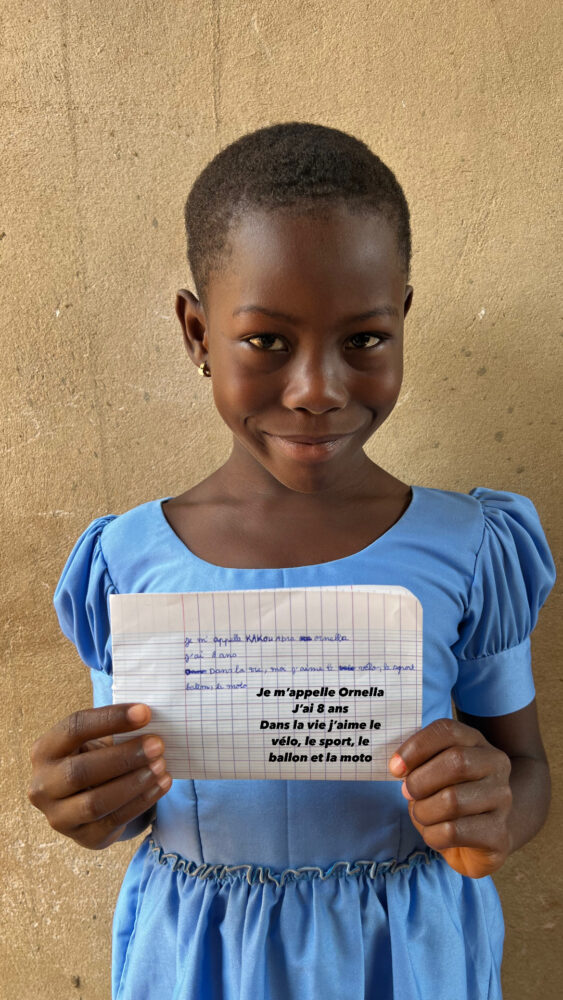 je m'appelle KAKOU Abra ornella
j'ai 8 ans
Dans la vie, moi j'aime le vélo, le sport
ballon, le moto
Je m'appelle Ornella
J'ai 8 ans
Dans la vie j'aime le
vélo, le sport, le
ballon et la moto